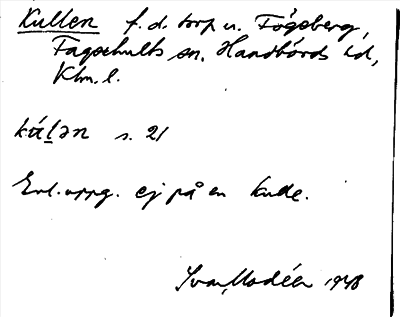 Kullen f.d. torp u. Fågsberg,
Fagerhults sn. Handbörds hd,
Klm. l.
kúlən s. 21
Enl. uppg. ej på en kulle.
Ivar Modéer 1948